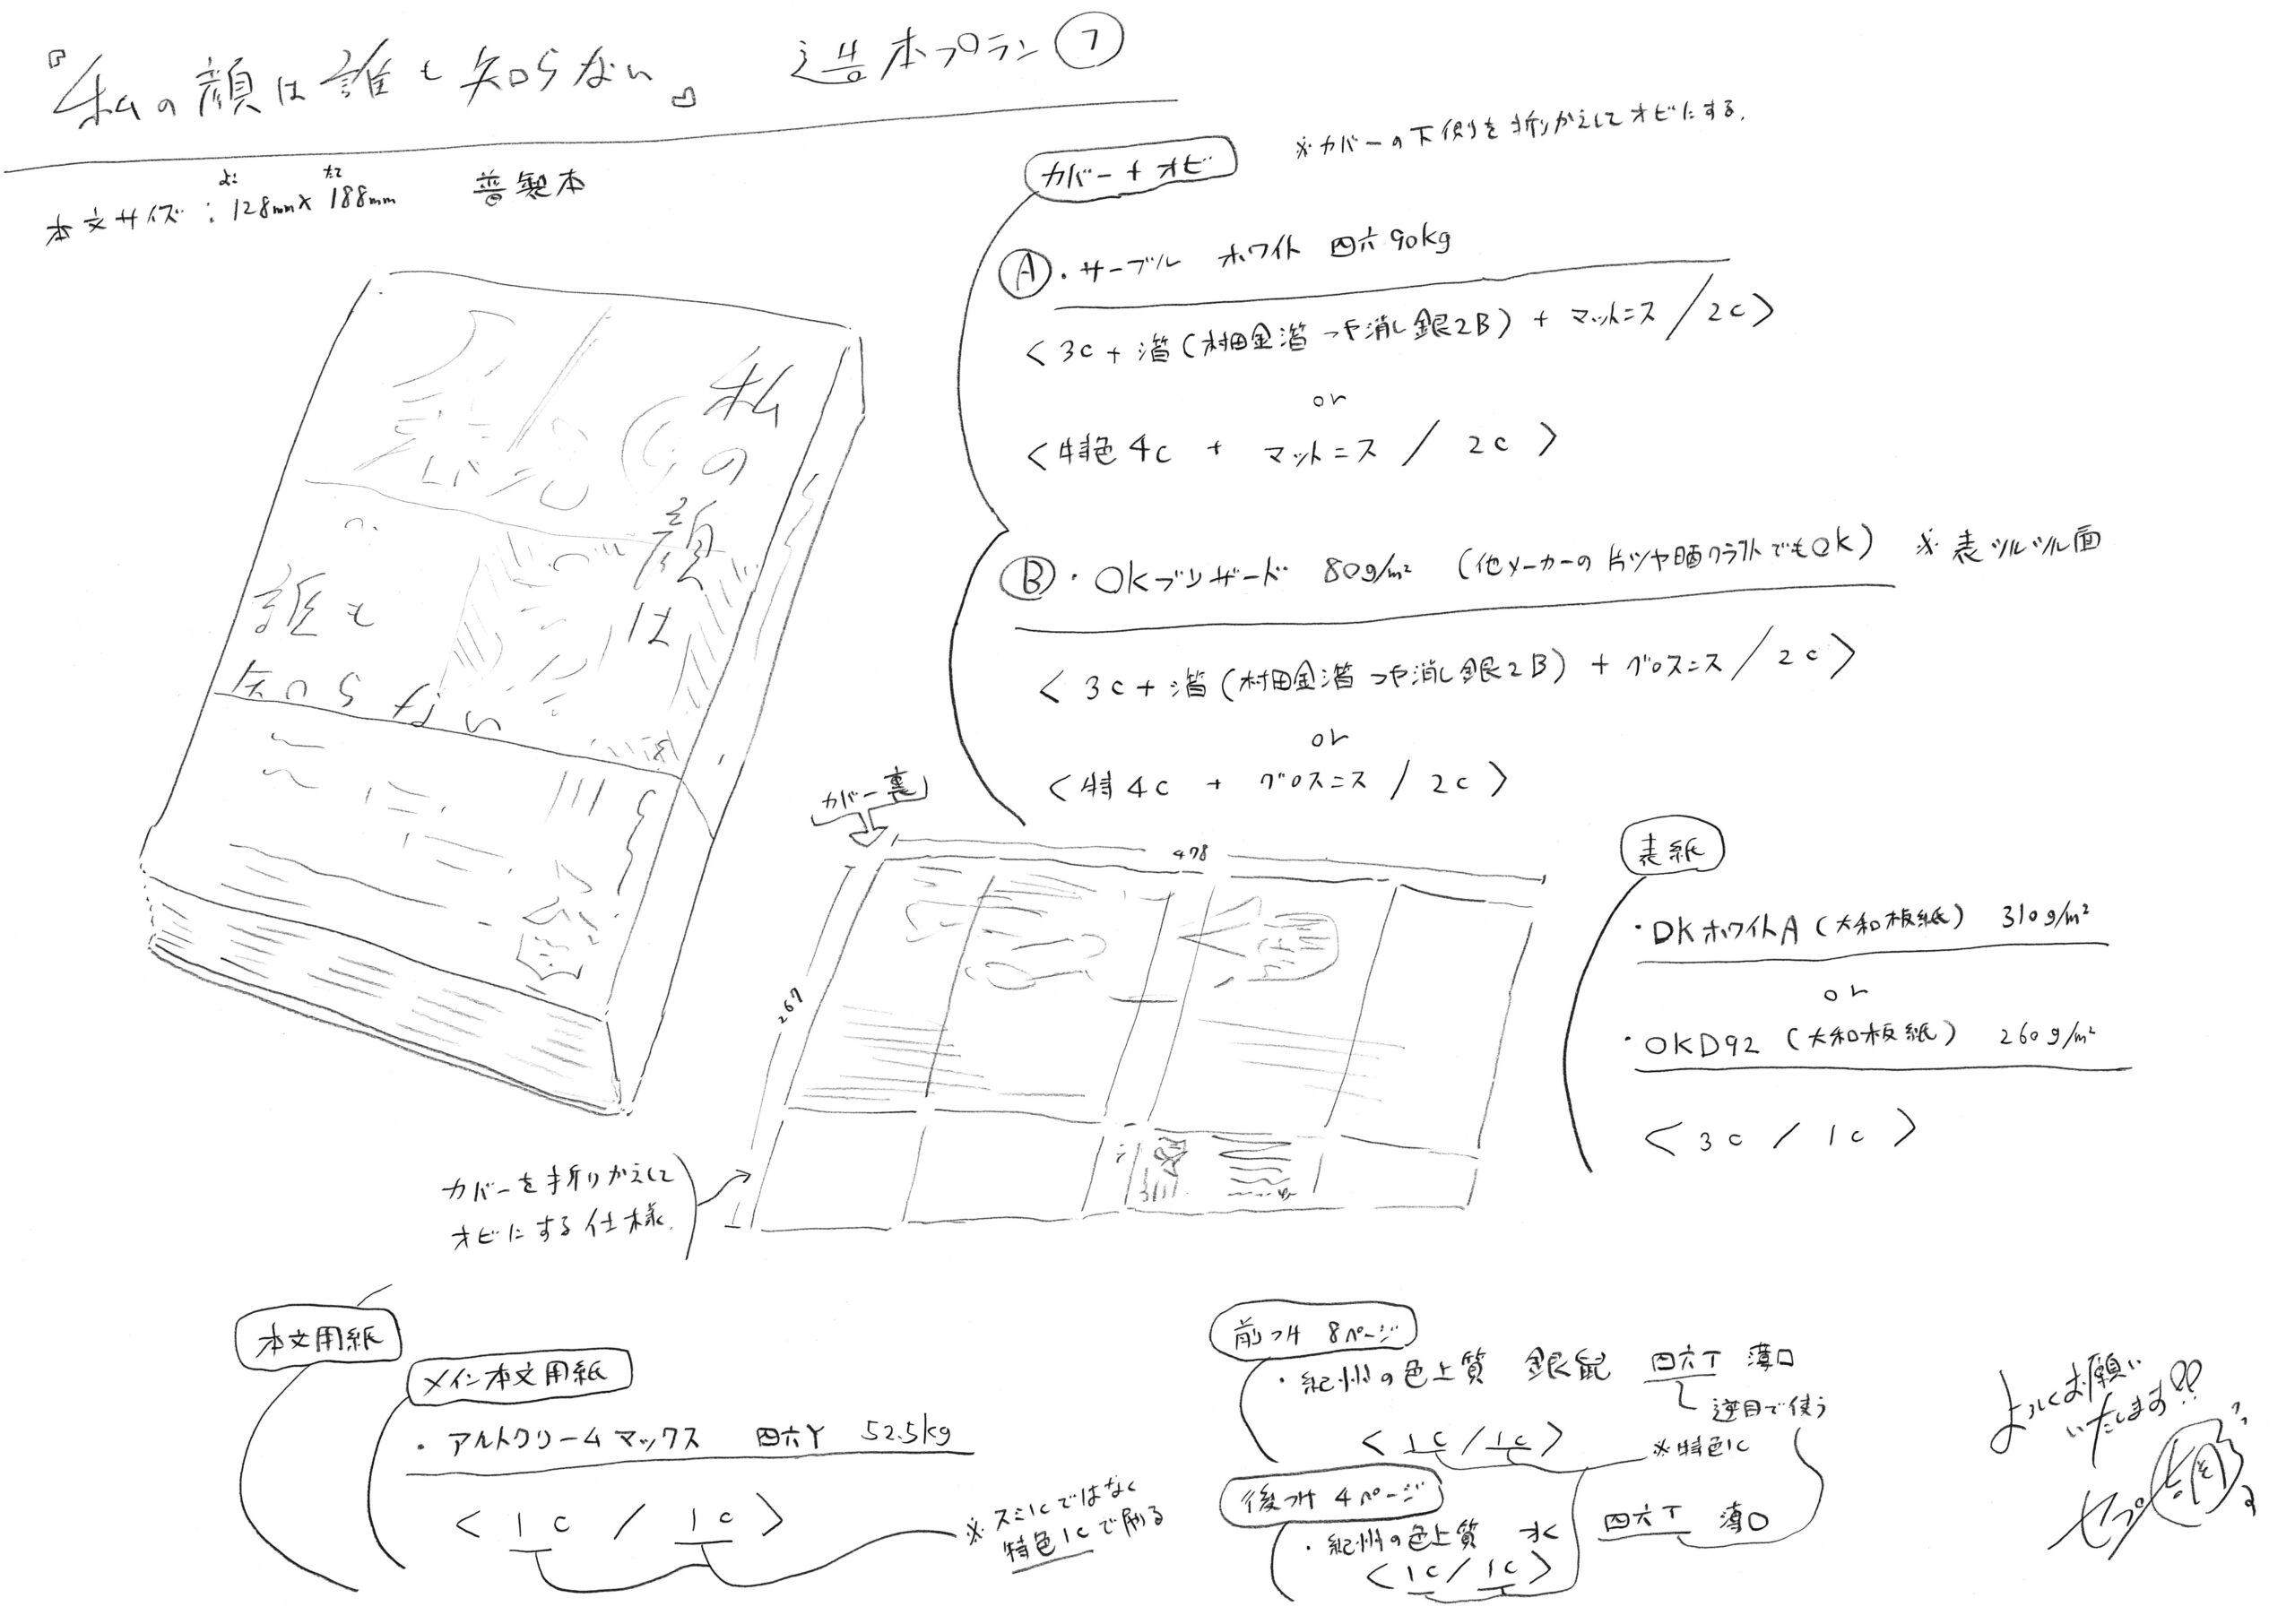 『私の顔は誰も知らない』 造本プラン⑦
本文サイズ：128mm×188mm 普製本
よこ たて
カバー＋オビ
※カバーの下側を折りかえしてオビにする。
Ⓐ・サーブル ホワイト 四六90kg
＜3c＋箔（村田金箔 つや消し銀2B）＋マットニス／2c＞
or
＜特色4c ＋ マットニス ／ 2c＞
Ⓑ・OKブリザード 80g/m² （他メーカーの片ツヤ晒クラフトでもOK） ※表ツルツル面
＜3c＋箔（村田金箔 つや消し銀2B）＋グロスニス／2c＞
or
＜特4c ＋ グロスニス ／ 2c＞
私の
顔は
誰も
知らない
カバー裏
478
267
カバーを折りかえして
オビにする仕様。
表紙
・DKホワイトA（大和板紙） 310g/m²
or
・OKD92（大和板紙） 260g/m²
＜3c ／ 1c＞
本文用紙
メイン本文用紙
・アルトクリームマックス 四六Y 52.5kg
＜1c ／ 1c＞
※スミ1cではなく
特色1cで刷る
前つけ 8ページ
・紀州の色上質 銀鼠 四六T 薄口
逆目で使う
＜1c／1c＞
※特色1c
後つけ 4ページ
・紀州の色上質 水 四六T 薄口
＜1c／1c＞
よろしくお願い
いたします!!